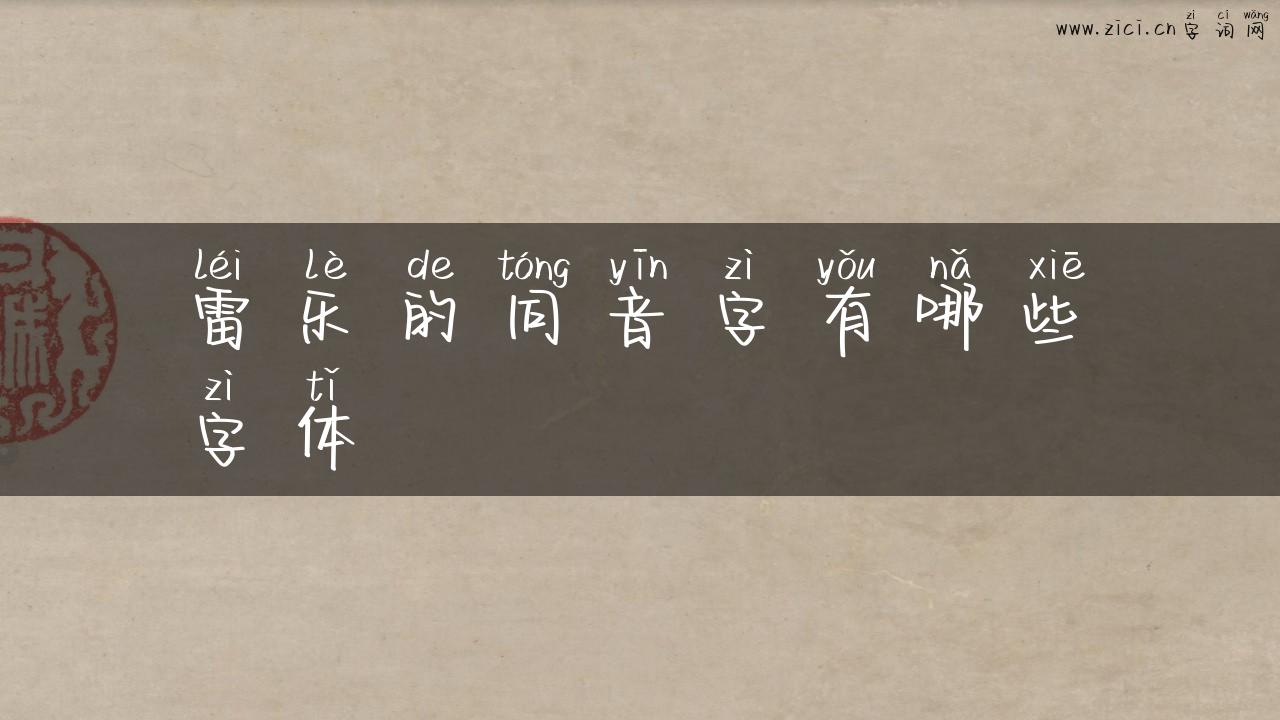 zì cí wǎng
www.zici.cn 字词网
léi lè de tóng yīn zì yǒu nǎ xiē
雷乐的同音字有哪些
zì tǐ
字体